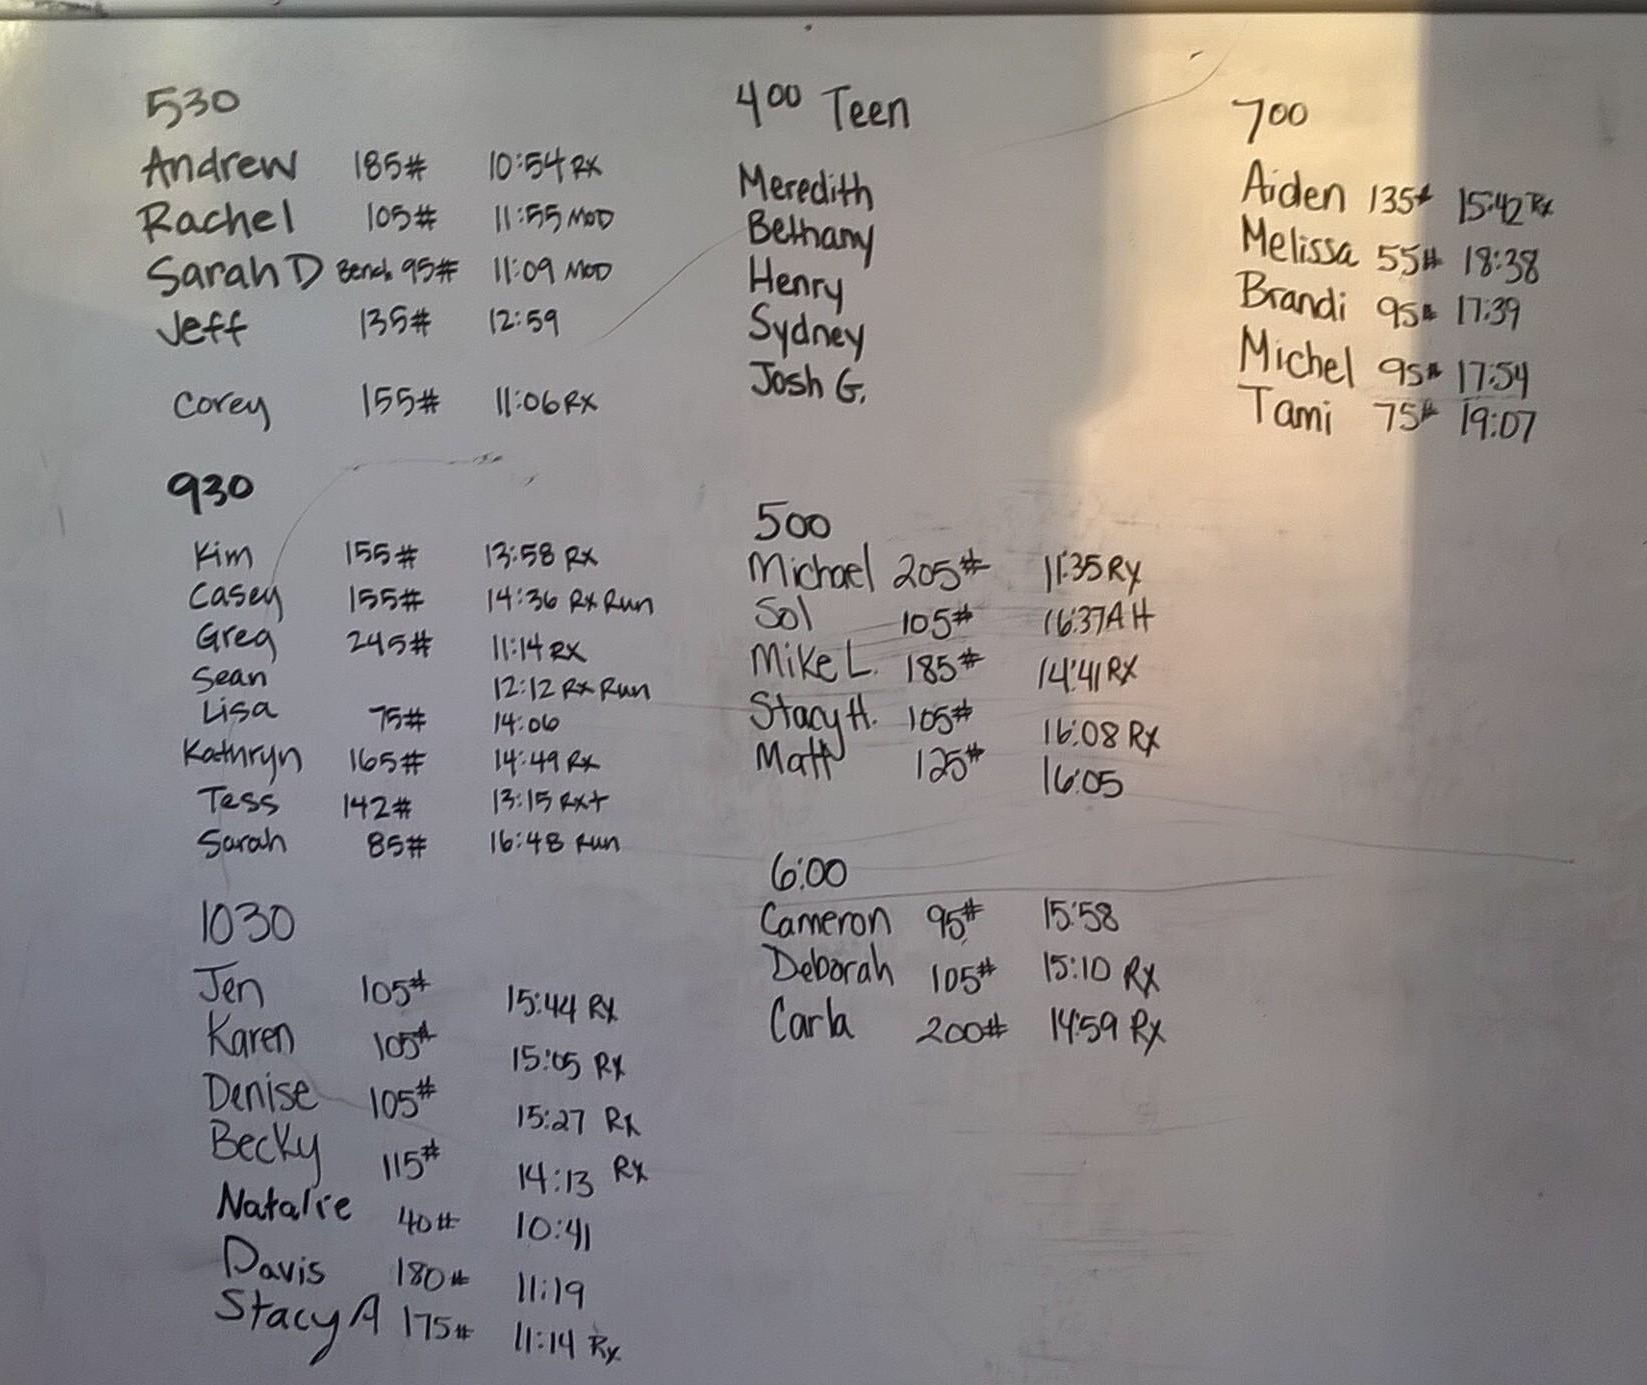 530
Andrew 185# 10:54 Rx
Rachel 105# 11:55 MOD
Sarah D Bench 95# 11:09 MOD
Jeff 135# 12:59
Corey 155# 11:06 Rx
930
Kim 155# 13:58 Rx
Casey 155# 14:36 Rx Run
Greg 245# 11:14 Rx
Sean 12:12 Rx Run
Lisa 75# 14:06
Kathryn 165# 14:49 Rx
Tess 142# 13:15 Rx+
Sarah 85# 16:48 Run
1030
Jen 105# 15:44 Rx
Karen 105# 15:05 Rx
Denise 105# 15:27 Rx
Becky 115# 14:13 Rx
Natalie 40# 10:41
Davis 180# 11:19
Stacy A 175# 11:14 Rx
400 Teen
Meredith
Bethany
Henry
Sydney
Josh G.
500
Michael 205# 11:35 Rx
Sol 105# 16:37 AH
Mike L. 185# 14:41 Rx
Stacy H. 105# 16:08 Rx
Matt 125# 16:05
6:00
Cameron 95# 15:58
Deborah 105# 15:10 Rx
Carla 200# 14:59 Rx
700
Aiden 135# 15:42 Rx
Melissa 55# 18:38
Brandi 95# 17:39
Michel 95# 17:54
Tami 75# 19:07